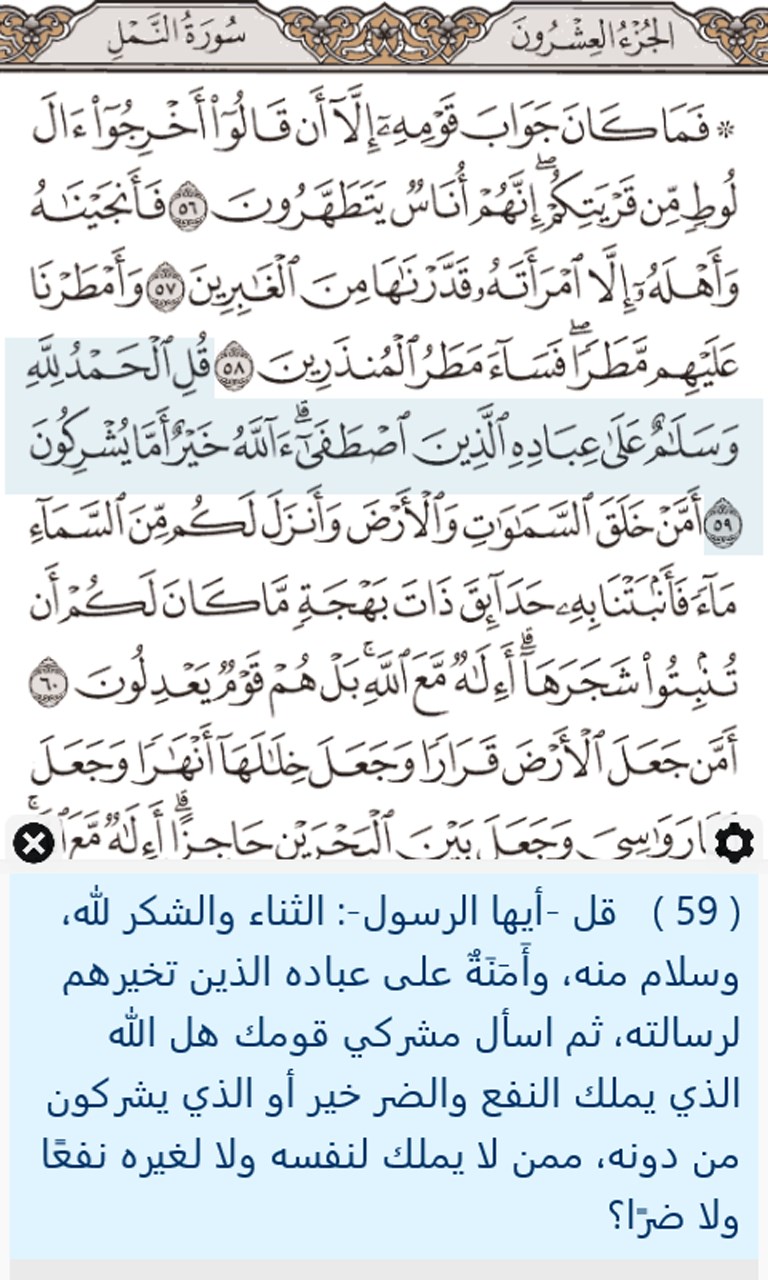 الجُزْءُ العِشْرُونَ
سُورَةُ النَّمْلِ
۞ فَمَا كَانَ جَوَابَ قَوْمِهِۦٓ إِلَّآ أَن قَالُوٓا۟ أَخْرِجُوٓا۟ ءَالَ
لُوطٍ مِّن قَرْيَتِكُمْ ۖ إِنَّهُمْ أُنَاسٌ يَتَطَهَّرُونَ ٥٦ فَأَنجَيْنَٰهُ
وَأَهْلَهُۥٓ إِلَّا ٱمْرَأَتَهُۥ قَدَّرْنَٰهَا مِنَ ٱلْغَٰبِرِينَ ٥٧ وَأَمْطَرْنَا
عَلَيْهِم مَّطَرًا ۖ فَسَآءَ مَطَرُ ٱلْمُنذَرِينَ ٥٨ قُلِ ٱلْحَمْدُ لِلَّهِ
وَسَلَٰمٌ عَلَىٰ عِبَادِهِ ٱلَّذِينَ ٱصْطَفَىٰٓ ۗ ءَآللَّهُ خَيْرٌ أَمَّا يُشْرِكُونَ
٥٩ أَمَّنْ خَلَقَ ٱلسَّمَٰوَٰتِ وَٱلْأَرْضَ وَأَنزَلَ لَكُم مِّنَ ٱلسَّمَآءِ
مَآءً فَأَنۢبَتْنَا بِهِۦ حَدَآئِقَ ذَاتَ بَهْجَةٍ مَّا كَانَ لَكُمْ أَن
تُنۢبِتُوا۟ شَجَرَهَآ ۗ أَءِلَٰهٌ مَّعَ ٱللَّهِ ۚ بَلْ هُمْ قَوْمٌ يَعْدِلُونَ ٦٠
أَمَّن جَعَلَ ٱلْأَرْضَ قَرَارًا وَجَعَلَ خِلَٰلَهَآ أَنْهَٰرًا وَجَعَلَ
رَوَٰسِىَ وَجَعَلَ بَيْنَ ٱلْبَحْرَيْنِ حَاجِزًا ۗ أَءِلَٰهٌ مَّعَ
( 59 ) قل -أيها الرسول-: الثناء والشكر لله،
وسلام منه، وأَمَنَةٌ على عباده الذين تخيرهم
لرسالته، ثم اسأل مشركي قومك هل الله
الذي يملك النفع والضر خير أو الذي يشركون
من دونه، ممن لا يملك لنفسه ولا لغيره نفعًا
ولا ضرًا؟